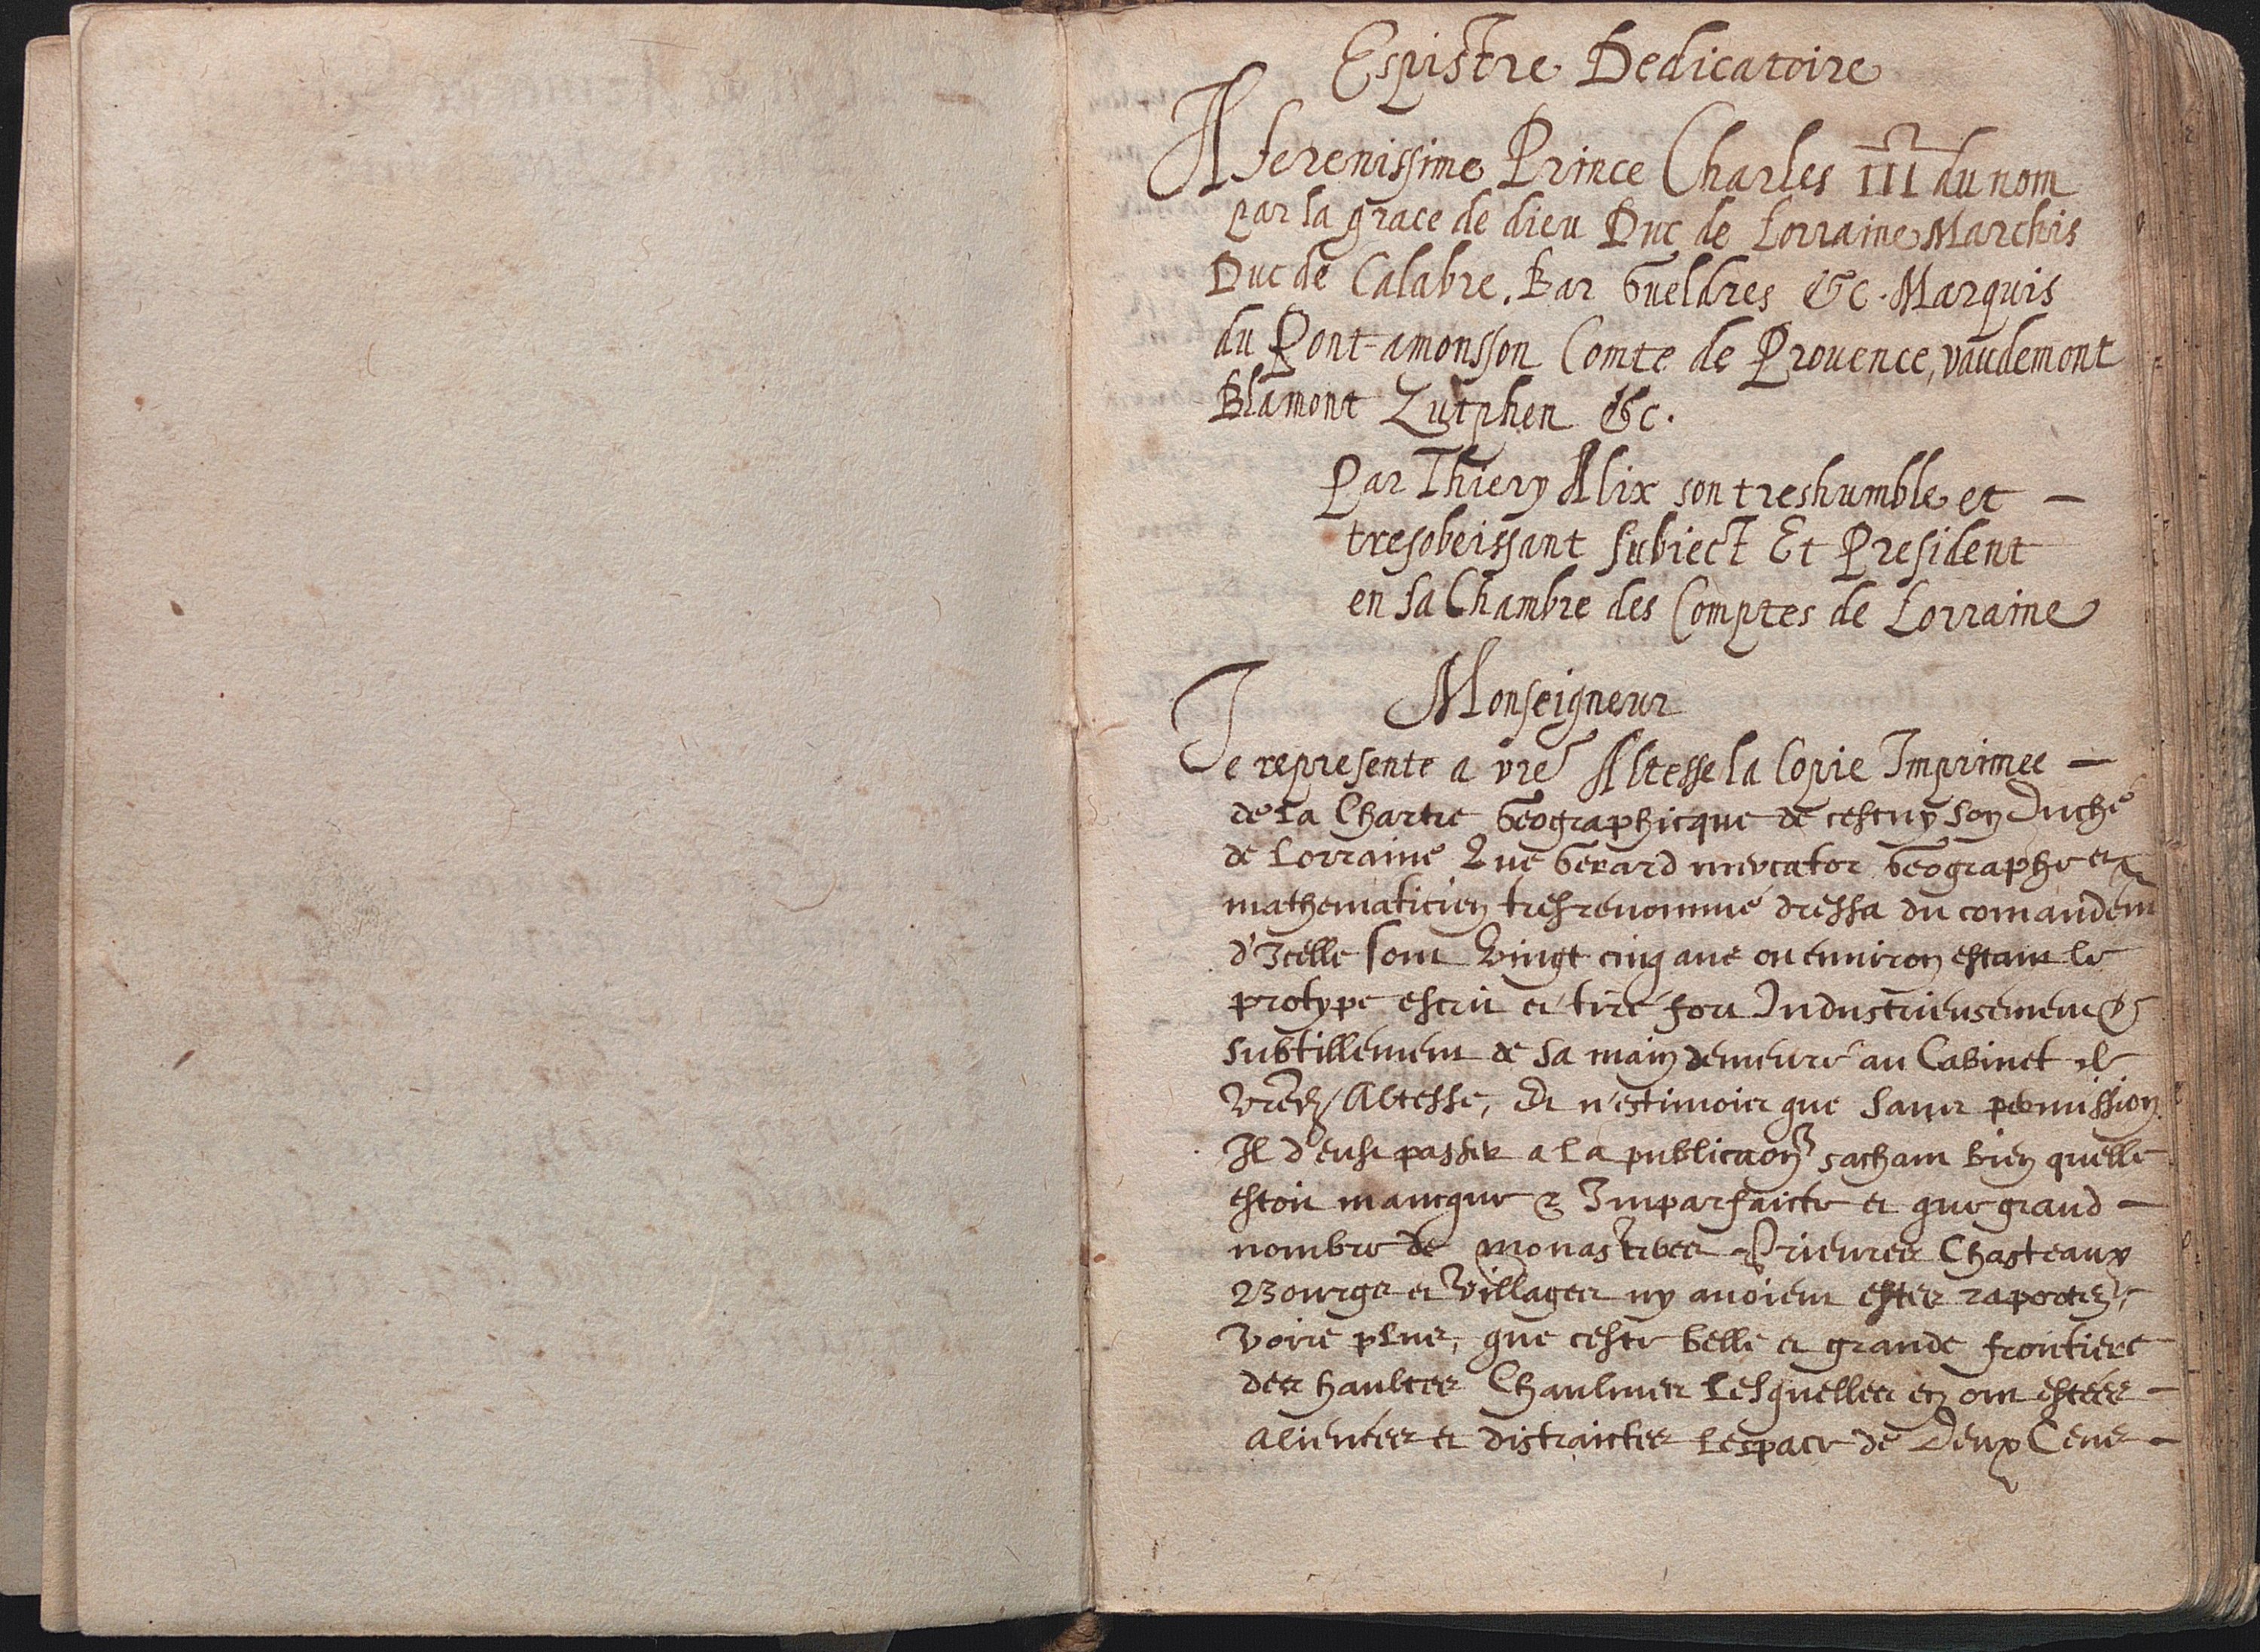 Epistre Dedicatoire
A serenissime Prince Charles III du nom
par la grace de dieu Duc de Lorraine Marchis
Duc de Calabre, Bar Gueldres &c. Marquis
du Pont-amonsson Comte de Prouence, vaudemont
Blamont Zutphen &c.
Par Thiery Alix son treshumble et —
tresobeissant subiect Et President
en sa Chambre des Comptes de Lorraine
Monseigneur
Je represente a vre Altesse la Copie Imprimee —
de la Chartre Geographicque de cestuy son Duché
de Lorraine Que Gerard mercator Geographe et
mathematicien tresrenommé dressa du comandemt
d'Icelle sont vingt cinq ans ou enuiron estant le
protype escrit et tiré fort Industrieusement &
subtillement de sa main demeuré au Cabinet de
Vred Altesse, Et n'estimois que sans permission
Il d'eust passer a la publicaon sachant bien quelle
estoit mancque & Imparfaicte et que grand —
nombre de monasteres Prieurez Chasteaux
Bourgs et Villages ny auoient estez raportez,
Voire plus, que ceste belle et grande frontiere
des haultes Chaulmes lesquelles en ont estees —
alienees et distraictes lespace de Deux Cens —